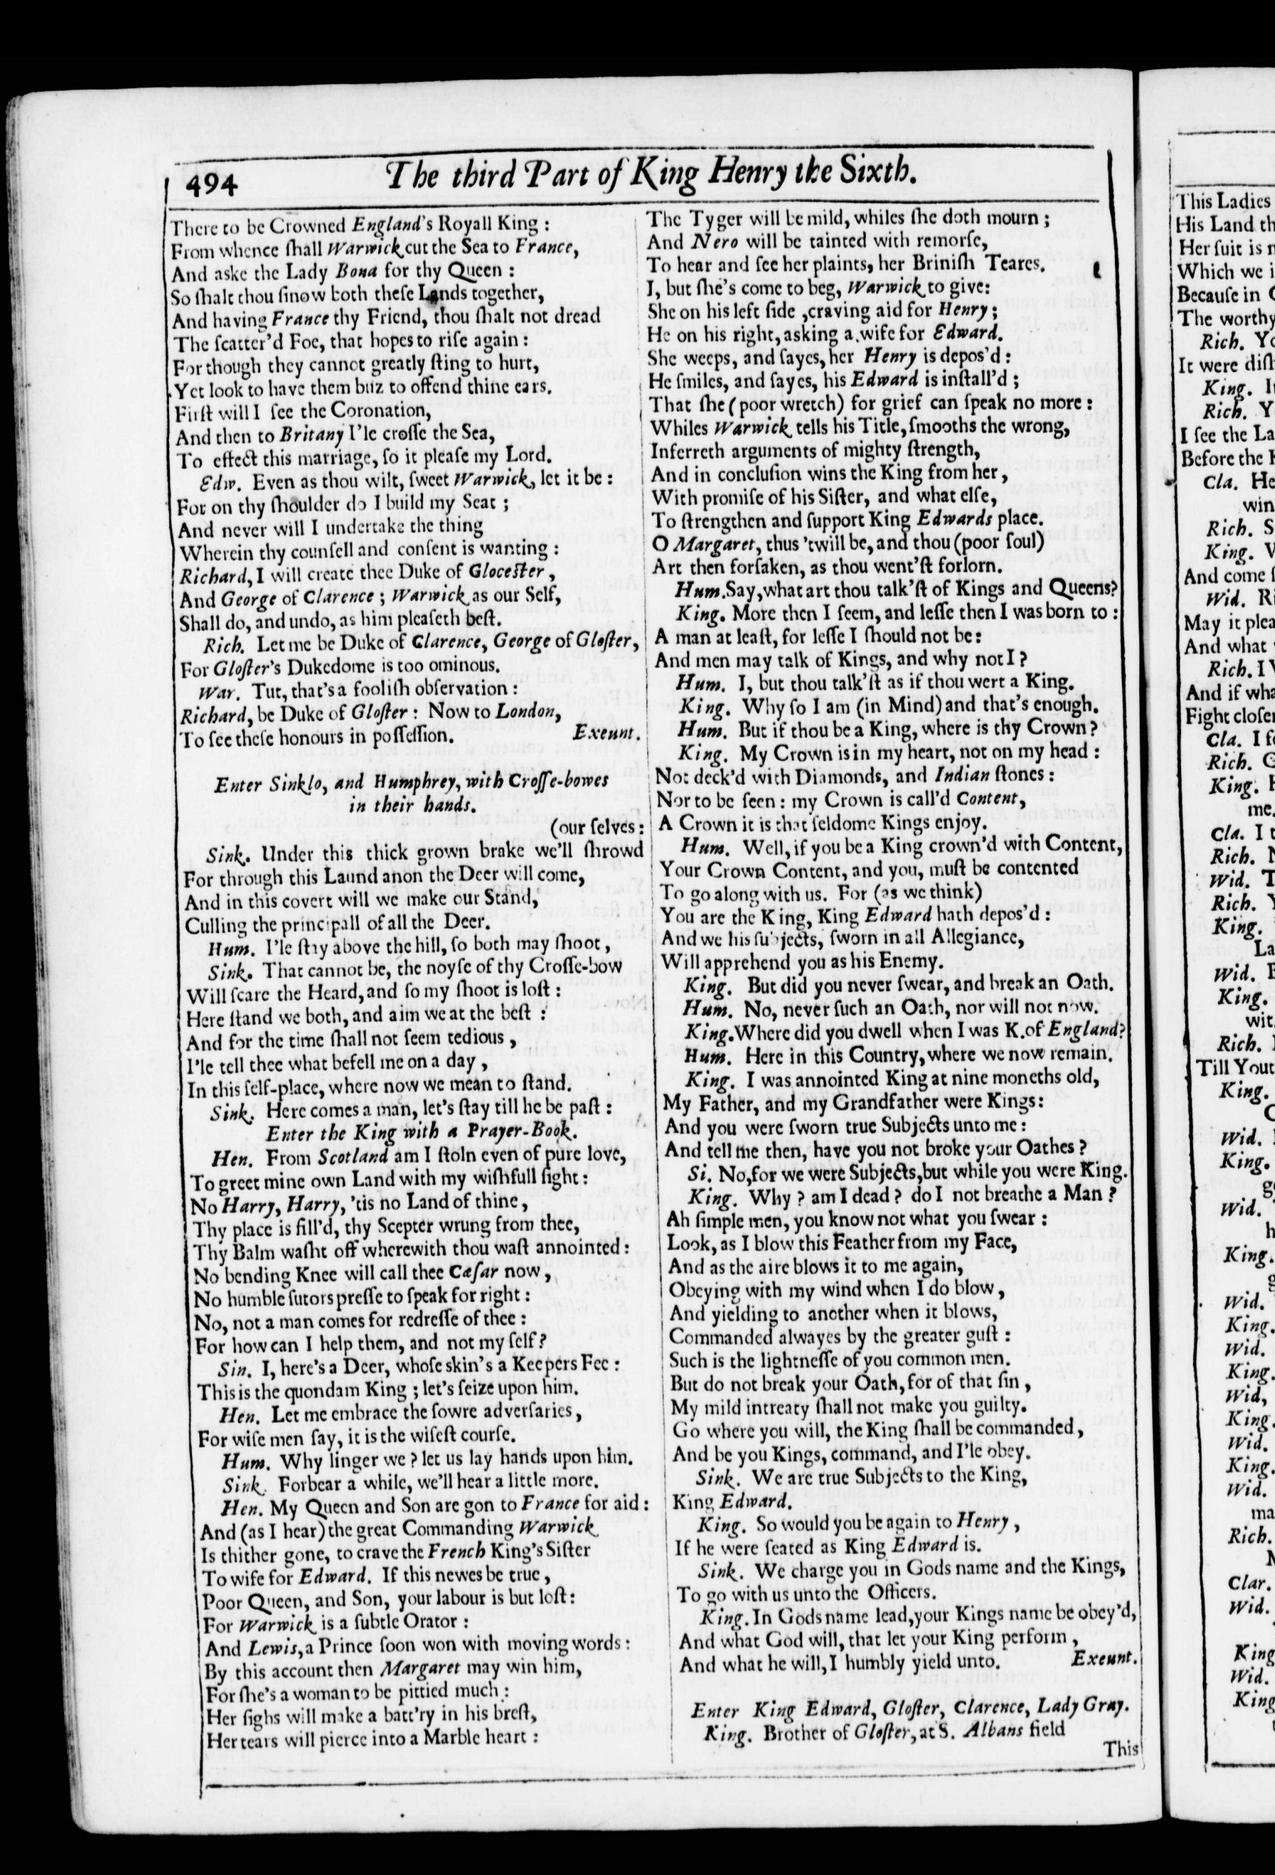 494
The third Part of King Henry the Sixth.
There to be Crowned England's Royall King :
From whence ſhall Warwick cut the Sea to France,
And aske the Lady Bona for thy Queen :
So ſhalt thou ſinow both theſe Lands together,
And having France thy Friend, thou ſhalt not dread
The ſcatter'd Foe, that hopes to riſe again :
For though they cannot greatly ſting to hurt,
Yet look to have them buz to offend thine ears.
Firſt will I ſee the Coronation,
And then to Britany I'le croſſe the Sea,
To effect this marriage, ſo it pleaſe my Lord.
Edw. Even as thou wilt, ſweet Warwick, let it be :
For on thy ſhoulder do I build my Seat ;
And never will I undertake the thing
Wherein thy counſell and conſent is wanting :
Richard, I will create thee Duke of Gloceſter,
And George of Clarence ; Warwick as our Self,
Shall do, and undo, as him pleaſeth beſt.
Rich. Let me be Duke of Clarence, George of Gloſter,
For Gloſter's Dukedome is too ominous.
War. Tut, that's a fooliſh obſervation :
Richard, be Duke of Gloſter : Now to London,
To ſee theſe honours in poſſeſſion. Exeunt.
Enter Sinklo, and Humphrey, with Croſſe-bowes
in their hands.
(our ſelves:
Sink. Under this thick grown brake we'll ſhrowd
For through this Laund anon the Deer will come,
And in this covert will we make our Stand,
Culling the principall of all the Deer.
Hum. I'le ſtay above the hill, ſo both may ſhoot,
Sink. That cannot be, the noyſe of thy Croſſe-bow
Will ſcare the Heard, and ſo my ſhoot is loſt :
Here ſtand we both, and aim we at the beſt :
And for the time ſhall not ſeem tedious,
I'le tell thee what befell me on a day,
In this ſelf-place, where now we mean to ſtand.
Sink. Here comes a man, let's ſtay till he be paſt :
Enter the King with a Prayer-Book.
Hen. From Scotland am I ſtoln even of pure love,
To greet mine own Land with my wiſhfull ſight :
No Harry, Harry, 'tis no Land of thine,
Thy place is fill'd, thy Scepter wrung from thee,
Thy Balm waſht off wherewith thou waſt annointed :
No bending Knee will call thee Cæſar now,
No humble ſutors preſſe to ſpeak for right :
No, not a man comes for redreſſe of thee :
For how can I help them, and not my ſelf?
Sin. I, here's a Deer, whoſe skin's a Keepers Fee :
This is the quondam King ; let's ſeize upon him.
Hen. Let me embrace the ſowre adverſaries,
For wiſe men ſay, it is the wiſeſt courſe.
Hum. Why linger we ? let us lay hands upon him.
Sink. Forbear a while, we'll hear a little more.
Hen. My Queen and Son are gon to France for aid :
And (as I hear) the great Commanding Warwick
Is thither gone, to crave the French King's Siſter
To wife for Edward. If this newes be true,
Poor Queen, and Son, your labour is but loſt :
For Warwick is a ſubtle Orator :
And Lewis, a Prince ſoon won with moving words :
By this account then Margaret may win him,
For ſhe's a woman to be pittied much :
Her ſighs will make a batt'ry in his breſt,
Her tears will pierce into a Marble heart :
The Tyger will be mild, whiles ſhe doth mourn ;
And Nero will be tainted with remorſe,
To hear and ſee her plaints, her Briniſh Teares.
I, but ſhe's come to beg, Warwick to give:
She on his left ſide ,craving aid for Henry;
He on his right, asking a wife for Edward.
She weeps, and ſayes, her Henry is depos'd :
He ſmiles, and ſayes, his Edward is inſtall'd ;
That ſhe (poor wretch) for grief can ſpeak no more :
Whiles Warwick tells his Title, ſmooths the wrong,
Inferreth arguments of mighty ſtrength,
And in concluſion wins the King from her,
With promiſe of his Siſter, and what elſe,
To ſtrengthen and ſupport King Edwards place.
O Margaret, thus 'twill be, and thou (poor ſoul)
Art then forſaken, as thou went'ſt forlorn.
Hum. Say, what art thou talk'ſt of Kings and Queens?
King. More then I ſeem, and leſſe then I was born to :
A man at leaſt, for leſſe I ſhould not be :
And men may talk of Kings, and why not I ?
Hum. I, but thou talk'ſt as if thou wert a King.
King. Why ſo I am (in Mind) and that's enough.
Hum. But if thou be a King, where is thy Crown ?
King. My Crown is in my heart, not on my head :
Not deck'd with Diamonds, and Indian ſtones :
Nor to be ſeen : my Crown is call'd Content,
A Crown it is that ſeldome Kings enjoy.
Hum. Well, if you be a King crown'd with Content,
Your Crown Content, and you, muſt be contented
To go along with us. For (as we think)
You are the King, King Edward hath depos'd :
And we his ſubjects, ſworn in all Allegiance,
Will apprehend you as his Enemy.
King. But did you never ſwear, and break an Oath.
Hum. No, never ſuch an Oath, nor will not now.
King. Where did you dwell when I was K. of England?
Hum. Here in this Country, where we now remain.
King. I was annointed King at nine moneths old,
My Father, and my Grandfather were Kings:
And you were ſworn true Subjects unto me :
And tell me then, have you not broke your Oathes ?
Si. No, for we were Subjects, but while you were King.
King. Why ? am I dead ? do I not breathe a Man ?
Ah ſimple men, you know not what you ſwear :
Look, as I blow this Feather from my Face,
And as the aire blows it to me again,
Obeying with my wind when I do blow,
And yielding to another when it blows,
Commanded alwayes by the greater guſt :
Such is the lightneſſe of you common men.
But do not break your Oath, for of that ſin,
My mild intreaty ſhall not make you guilty.
Go where you will, the King ſhall be commanded,
And be you Kings, command, and I'le obey.
Sink. We are true Subjects to the King,
King Edward.
King. So would you be again to Henry,
If he were ſeated as King Edward is.
Sink. We charge you in Gods name and the Kings,
To go with us unto the Officers.
King. In Gods name lead, your Kings name be obey'd,
And what God will, that let your King perform,
And what he will, I humbly yield unto. Exeunt.
Enter King Edward, Gloſter, Clarence, Lady Gray.
King. Brother of Gloſter, at S. Albans field
This
This Ladies
His Land
Her ſuit is
Which we
Becauſe in
The worthy
Rich.
It were
King.
Rich.
I ſee the
Before the
Cla.
Rich.
King.
And come
Wid.
May it
And what
Rich. I
And if
Fight
Cla. I
Rich.
King.
me.
Cla. I
Rich.
Wid.
Rich.
King.
Wid.
King.
Rich.
Till
King.
Wid.
King.
Wid.
King.
Wid.
King.
Wid.
King.
Wid,
King.
Wid.
King.
Wid.
Rich.
Clar.
Wid.
King
Wid.
King